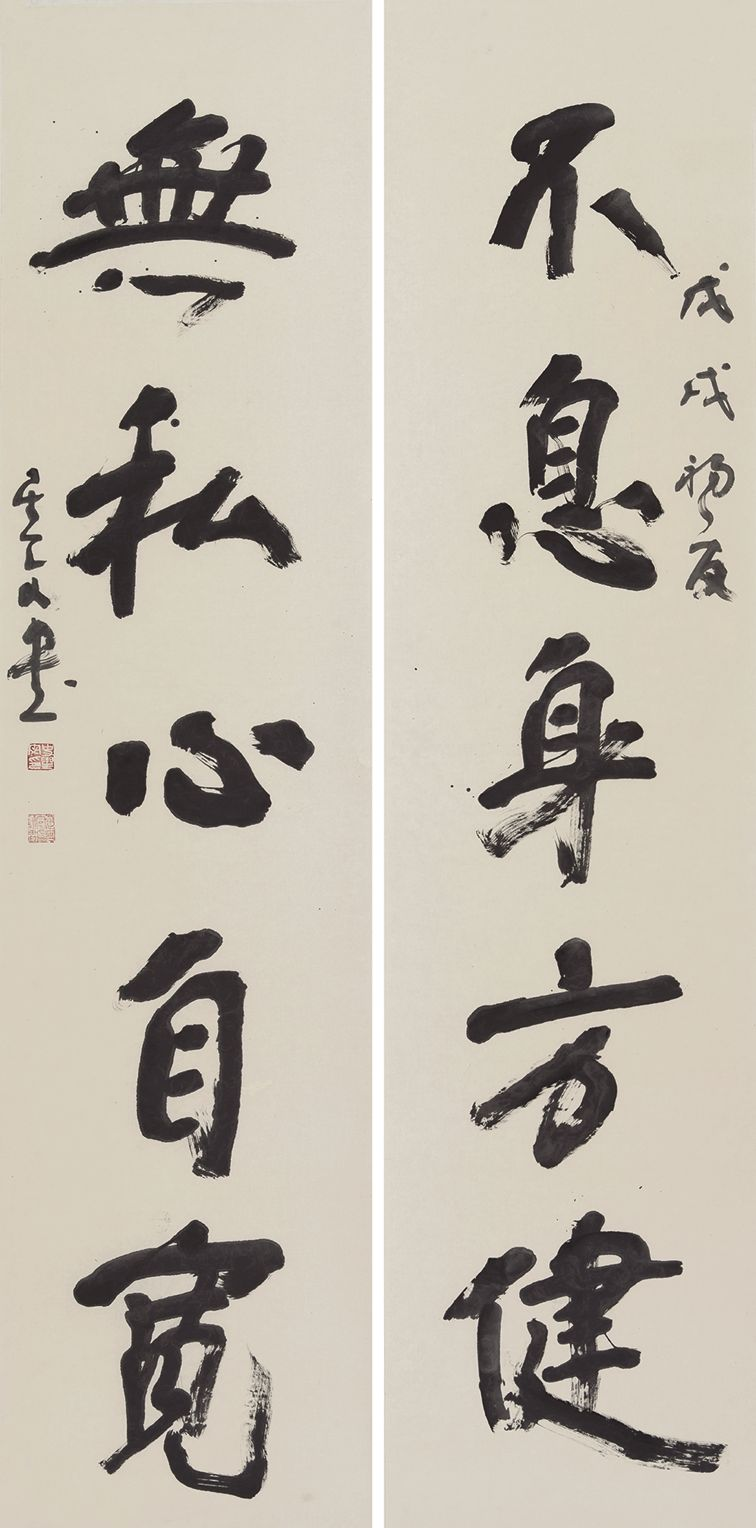 戊戌初夏
不息身方健
無私心自寬
書